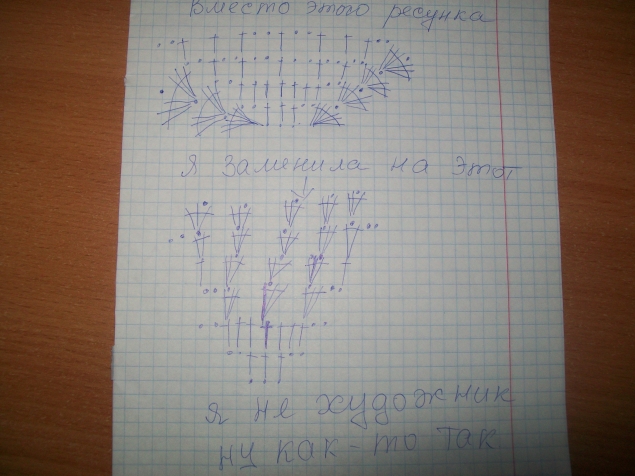 Вместо этого ресунка
я заменила на этот
я не художник
ну как-то так